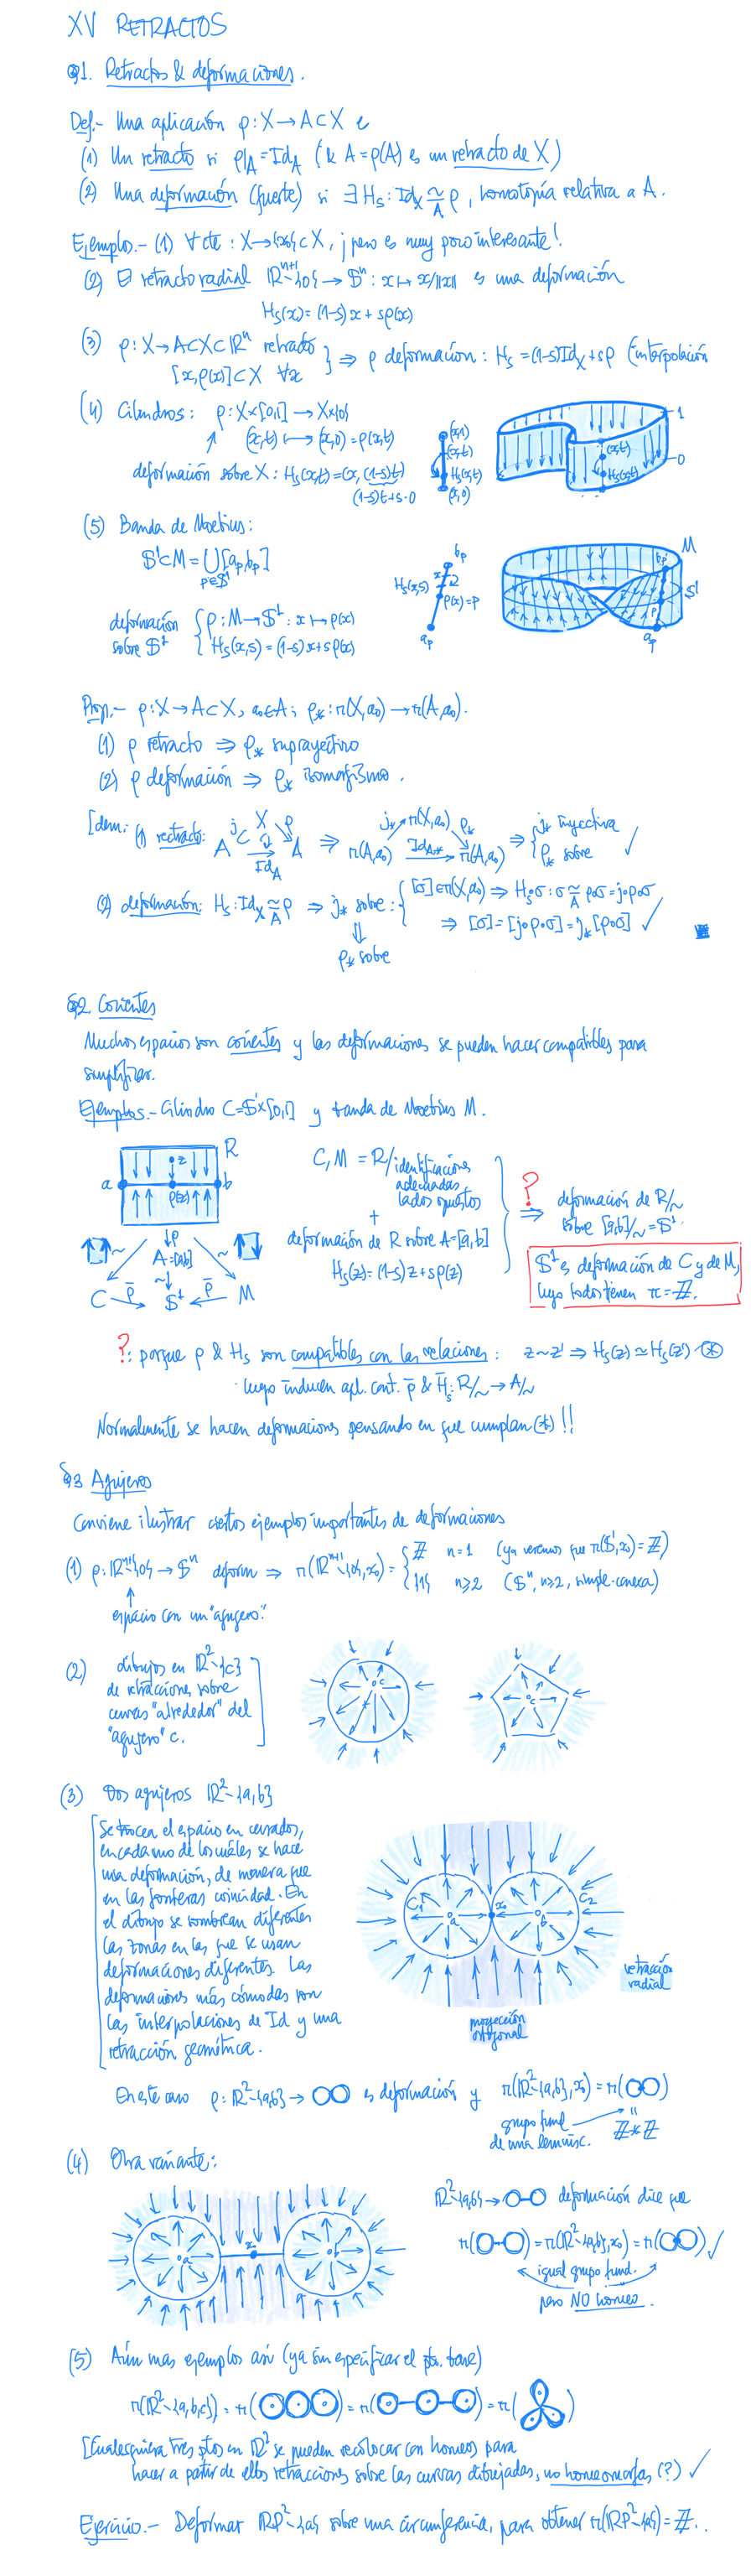 XV RETRACTOS
§1. Retractos & deformaciones.
Def.- Una aplicación ρ: X → A ⊂ X es
(1) Un retracto si ρ|A = Id_A (& A = ρ(A) es un retracto de X)
(2) Una deformación (fuerte) si ∃ H_s: Id_X ≃_A ρ, homotopía relativa a A.
Ejemplos.- (1) ∀ cte: X → {x₀} ⊂ X, ¡pero es muy poco interesante!
(2) El retracto radial ℝⁿ⁺¹∖{0} → 𝕊ⁿ: x ↦ x/‖x‖ es una deformación
H_s(x) = (1-s)x + sρ(x)
(3) ρ: X → A ⊂ X ⊂ ℝⁿ retracto
[x, ρ(x)] ⊂ X ∀x } ⇒ ρ deformación: H_s = (1-s)Id_X + sρ (interpolación
(4) Cilindros: ρ: X×[0,1] → X×{0}
(x,t) ↦ (x,0) = ρ(x,t)
deformación sobre X: H_s(x,t) = (x, (1-s)t)
(1-s)t + s·0
(x,1)
(x,t)
H_s(x,t)
(x,0)
1
(x,t)
0
H_s(x,t)
(5) Banda de Moebius:
𝕊¹ ⊂ M = ⋃_{p∈𝕊¹} [a_p, b_p]
deformación sobre 𝕊¹ { ρ: M → 𝕊¹: x ↦ ρ(x)
H_s(x,s) = (1-s)x + sρ(x)
b_p
x
H_s(x,s)
ρ(x) = p
a_p
M
b_p
𝕊¹
p
a_p
Prop.- ρ: X → A ⊂ X, a₀ ∈ A; ρ_*: π(X,a₀) → π(A,a₀).
(1) ρ retracto ⇒ ρ_* suprayectivo
(2) ρ deformación ⇒ ρ_* isomorfismo.
[dem: (1) retracto: A j X ρ A Id_A ⇒ π(A,a₀) j_* π(X,a₀) ρ_* π(A,a₀) Id_{A*} ⇒ { j_* inyectiva
ρ_* sobre ✓
(2) deformación: H_s: Id_X ≃_A ρ ⇒ j_* sobre: { [σ] ∈ π(X,a₀) ⇒ H_s∘σ: σ ≃_A ρ∘σ = j∘ρ∘σ
⇒ [σ] = [j∘ρ∘σ] = j_*[ρ∘σ] ✓
⇓
ρ_* sobre
§2 Cocientes
Muchos espacios son cocientes y las deformaciones se pueden hacer compatibles para
simplificar.
Ejemplos.- Cilindro C = 𝕊¹×[0,1] y banda de Moebius M.
R
z
a
ρ(z)
b
↓ρ
A = [a,b]
~
C ρ̄ → 𝕊¹ ← ρ̄ M
C, M = R/identificaciones
adecuadas
lados opuestos
+
deformación de R sobre A = [a,b]
H_s(z) = (1-s)z + sρ(z)
?
⇒
deformación de R/~
sobre [a,b]/~ = 𝕊¹
𝕊¹ es deformación de C y de M,
luego todos tienen π = ℤ.
?: porque ρ & H_s son compatibles con las relaciones: z ~ z' ⇒ H_s(z) ≃ H_s(z') (*)
luego inducen apl. cont. ρ̄ & H̄_s: R/~ → A/~
Normalmente se hacen deformaciones pensando en que cumplan (*)!!
§3 Agujeros
Conviene ilustrar ciertos ejemplos importantes de deformaciones
(1) ρ: ℝⁿ⁺¹∖{0} → 𝕊ⁿ deform ⇒ π(ℝⁿ⁺¹∖{0}, x₀) = { ℤ n = 1 (ya veremos que π(𝕊¹,x₀) = ℤ)
{1} n ≥ 2 (𝕊ⁿ, n ≥ 2, simple-conexa)
↑
espacio con un "agujero".
(2) dibujos en ℝ²∖{c}
de retracciones sobre
curvas "alrededor" del
"agujero" c.
c
c
(3) Dos agujeros ℝ²∖{a,b}
Se trocea el espacio en cerrados,
en cada uno de los cuáles se hace
una deformación, de manera que
en las fronteras coincidad. En
el dibujo se sombrean diferentes
las zonas en las que se usan
deformaciones diferentes. Las
deformaciones más cómodas son
las interpolaciones de Id y una
retracción geométrica.
C₁
a
x₀
b
C₂
retracción
radial
proyección
ortogonal
En este caso ρ: ℝ²∖{a,b} → OO es deformación y π(ℝ²∖{a,b}, x₀) = π(OO)
grupo fund
de una lemnisc.
ℤ*ℤ
(4) Otra variante:
a
x
b
ℝ²∖{a,b} → O-O deformación dice que
π(O-O) = π(ℝ²∖{a,b}, x₀) = π(OO) ✓
igual grupo fund.
pero NO homeo.
(5) Aún mas ejemplos así (ya sin especificar el pto. base)
π(ℝ²∖{a,b,c}) = π(OOO) = π(O-O-O) = π( )
[Cualesquiera tres ptos en ℝ² se pueden recolocar con homeos para
hacer a partir de ellos retracciones sobre las curvas dibujadas, no homeomorfas (?) ✓
Ejercicio.- Deformar ℝP²∖{a} sobre una circunferencia, para obtener π(ℝP²∖{a}) = ℤ.